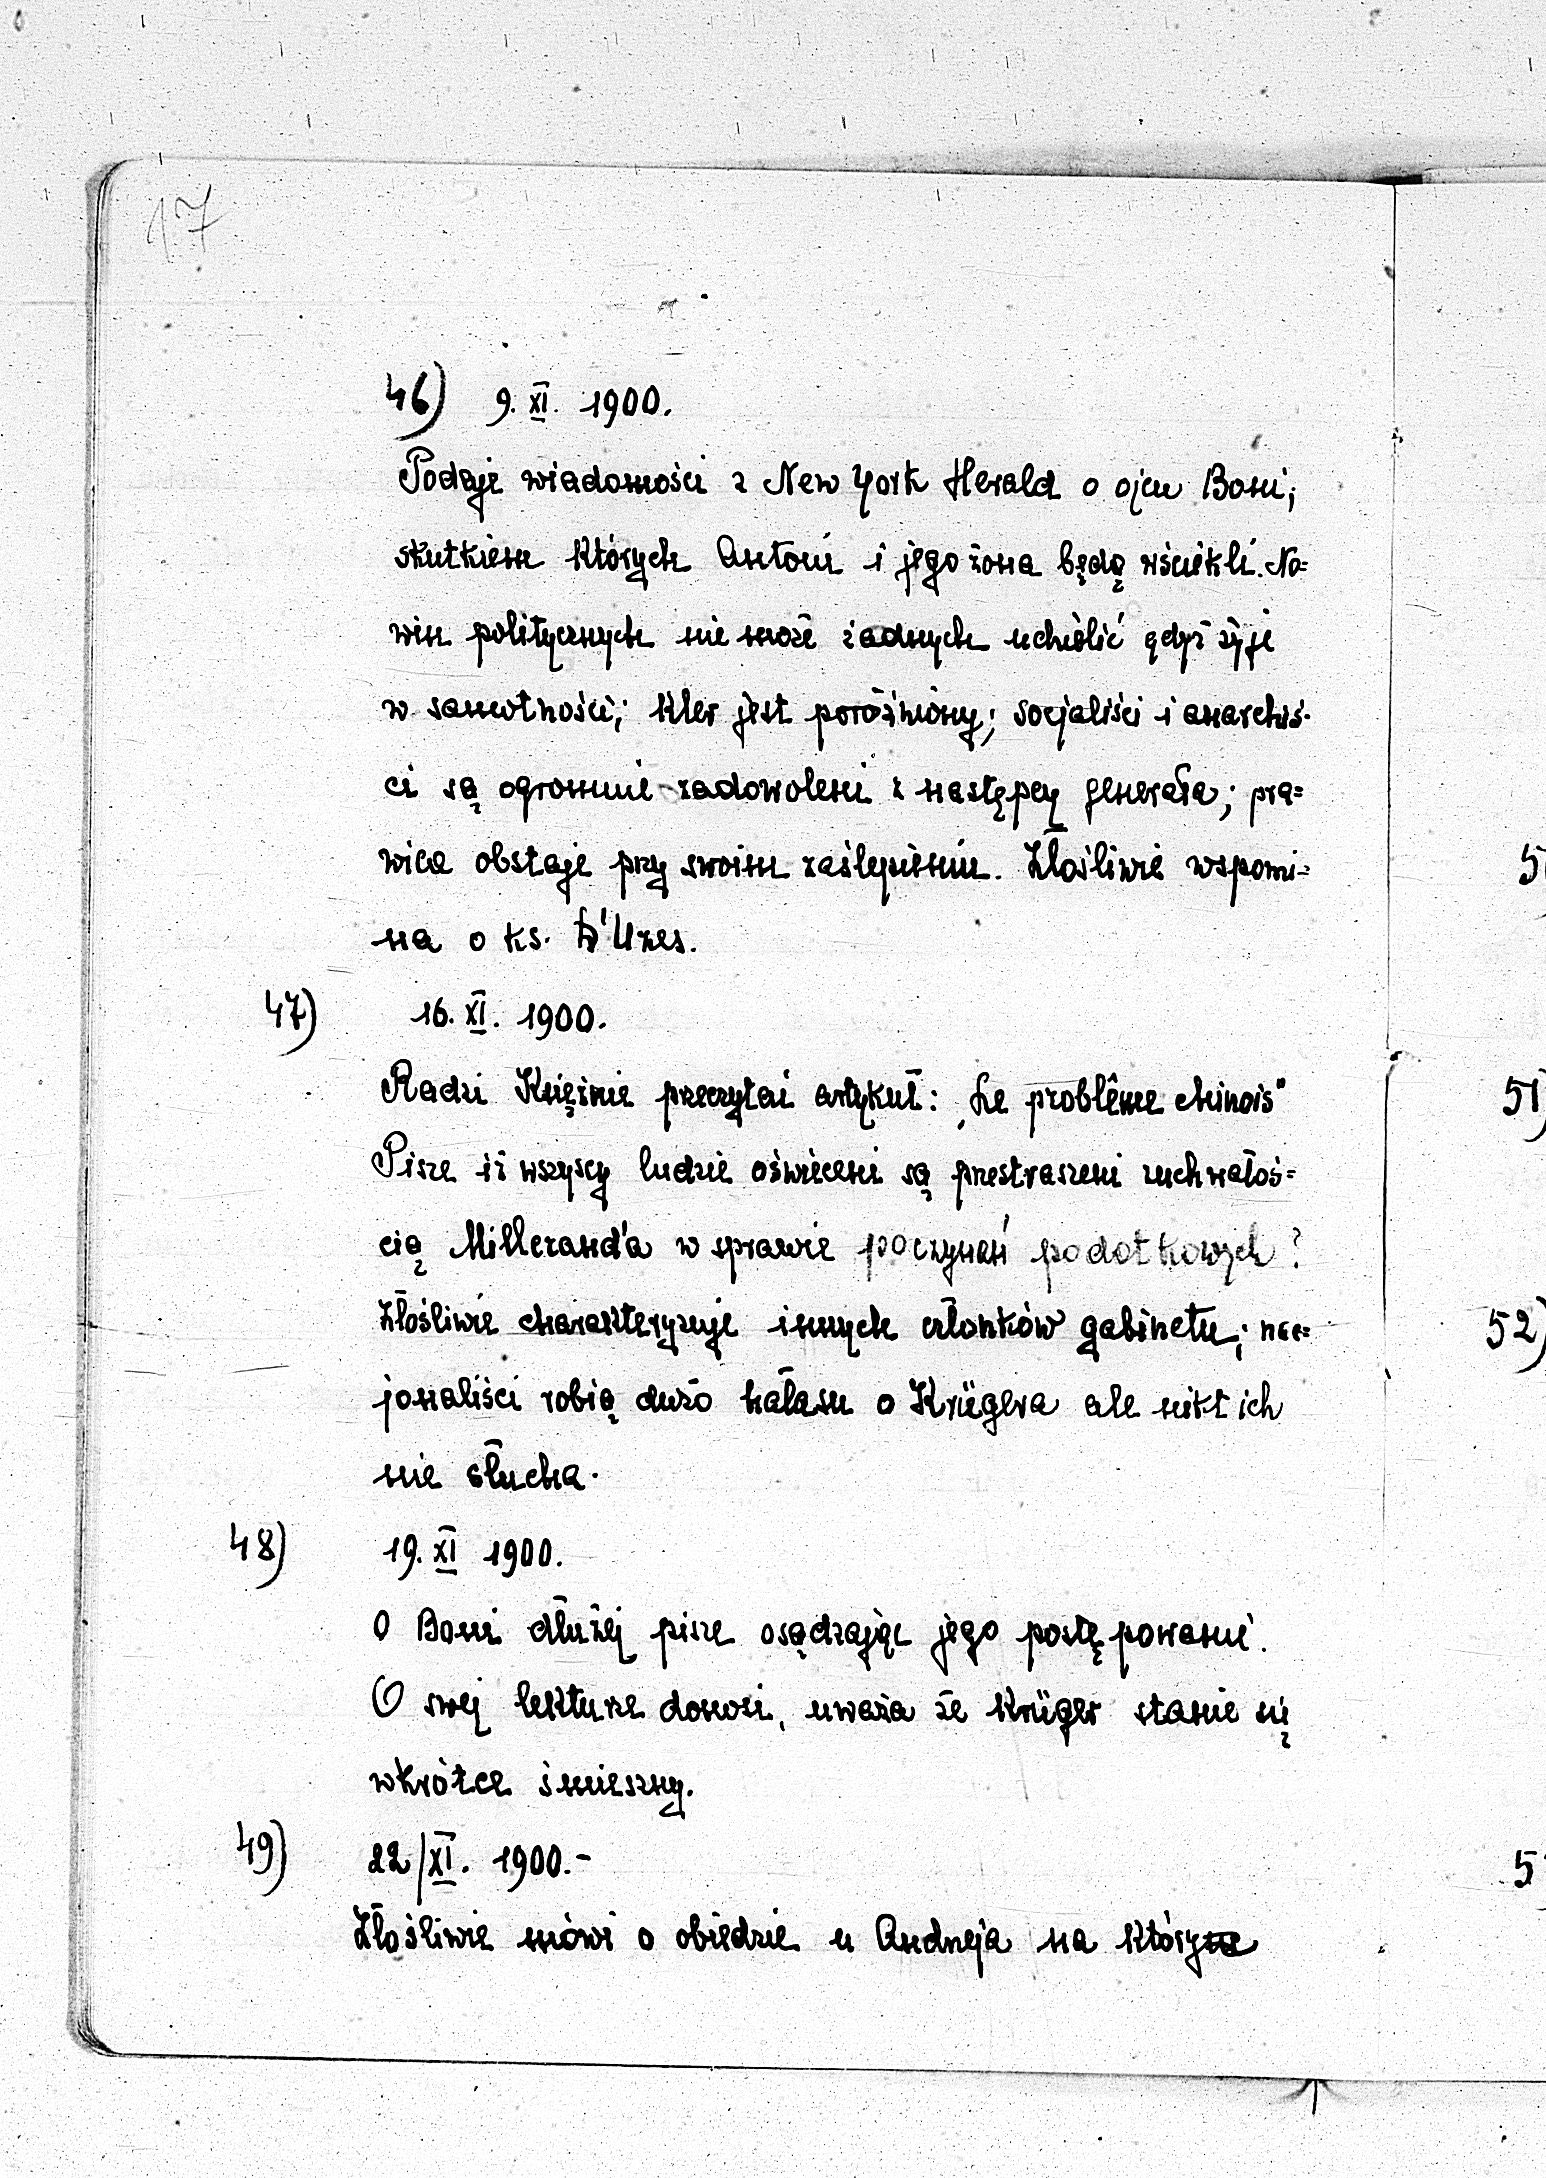 17
46) 9. XI. 1900.
Podaje wiadomości z New York Herald o ojcu Boni;
skutkiem których Antoni i jego żona będą wściekli. No=
win politycznych nie może żadnych udzielić gdyż żyje
w samotności; kler jest poróżniony; socjaliści i anarchiś-
ci są ogromnie zadowoleni z następcy generała; pra=
wica obstaje przy swoim zaślepieniu. Złośliwie wspomi=
na o ks. D'Uzes.
47) 16. XI. 1900.
Radzi Księżnie przeczytać artykuł: „Le problême chinois"
Pisze iż wszyscy ludzie oświeceni są przestraszeni zuchwałoś=
cią Millerand'a w sprawie poczynań podatkowych?
Złośliwie charakteryzuje innych członków gabinetu; nac=
jonaliści robią dużo hałasu o Krügera ale nikt ich
nie słucha.
48) 19. XI 1900.
O Boni dłużej pisze osądzając jego postępowanie.
O swej lekturze donosi, uważa że Krüger stanie się
wkrótce śmieszny.
49) 22/XI. 1900.-
Złośliwie mówi o obiedzie u Andreja na którym
51)
52)